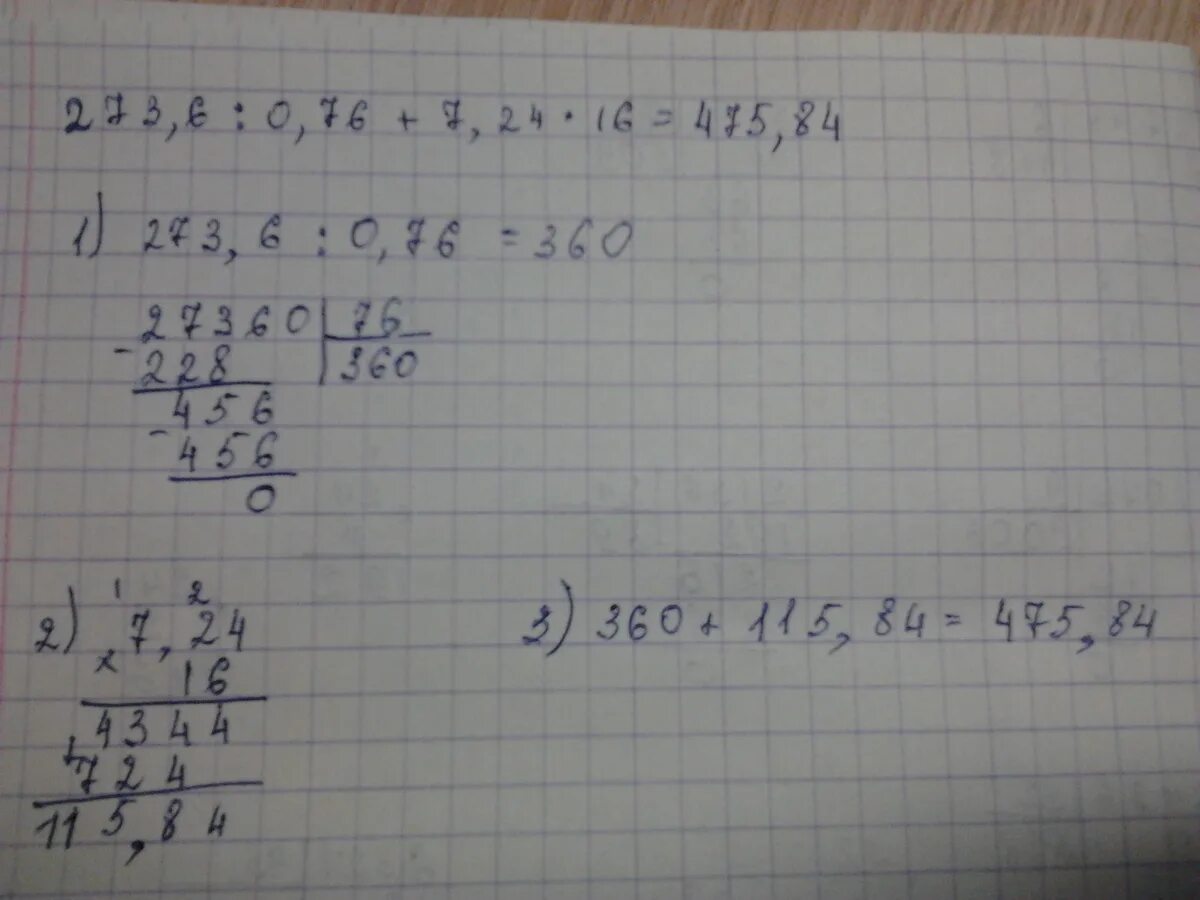 273,6 : 0,76 + 7,24 · 16 = 475,84
1) 273,6 : 0,76 = 360
27360 | 76
- 228 | 360
- 456
456
0
1 2
2) × 7,24
16
+ 4344
724
115,84
3) 360 + 115,84 = 475,84